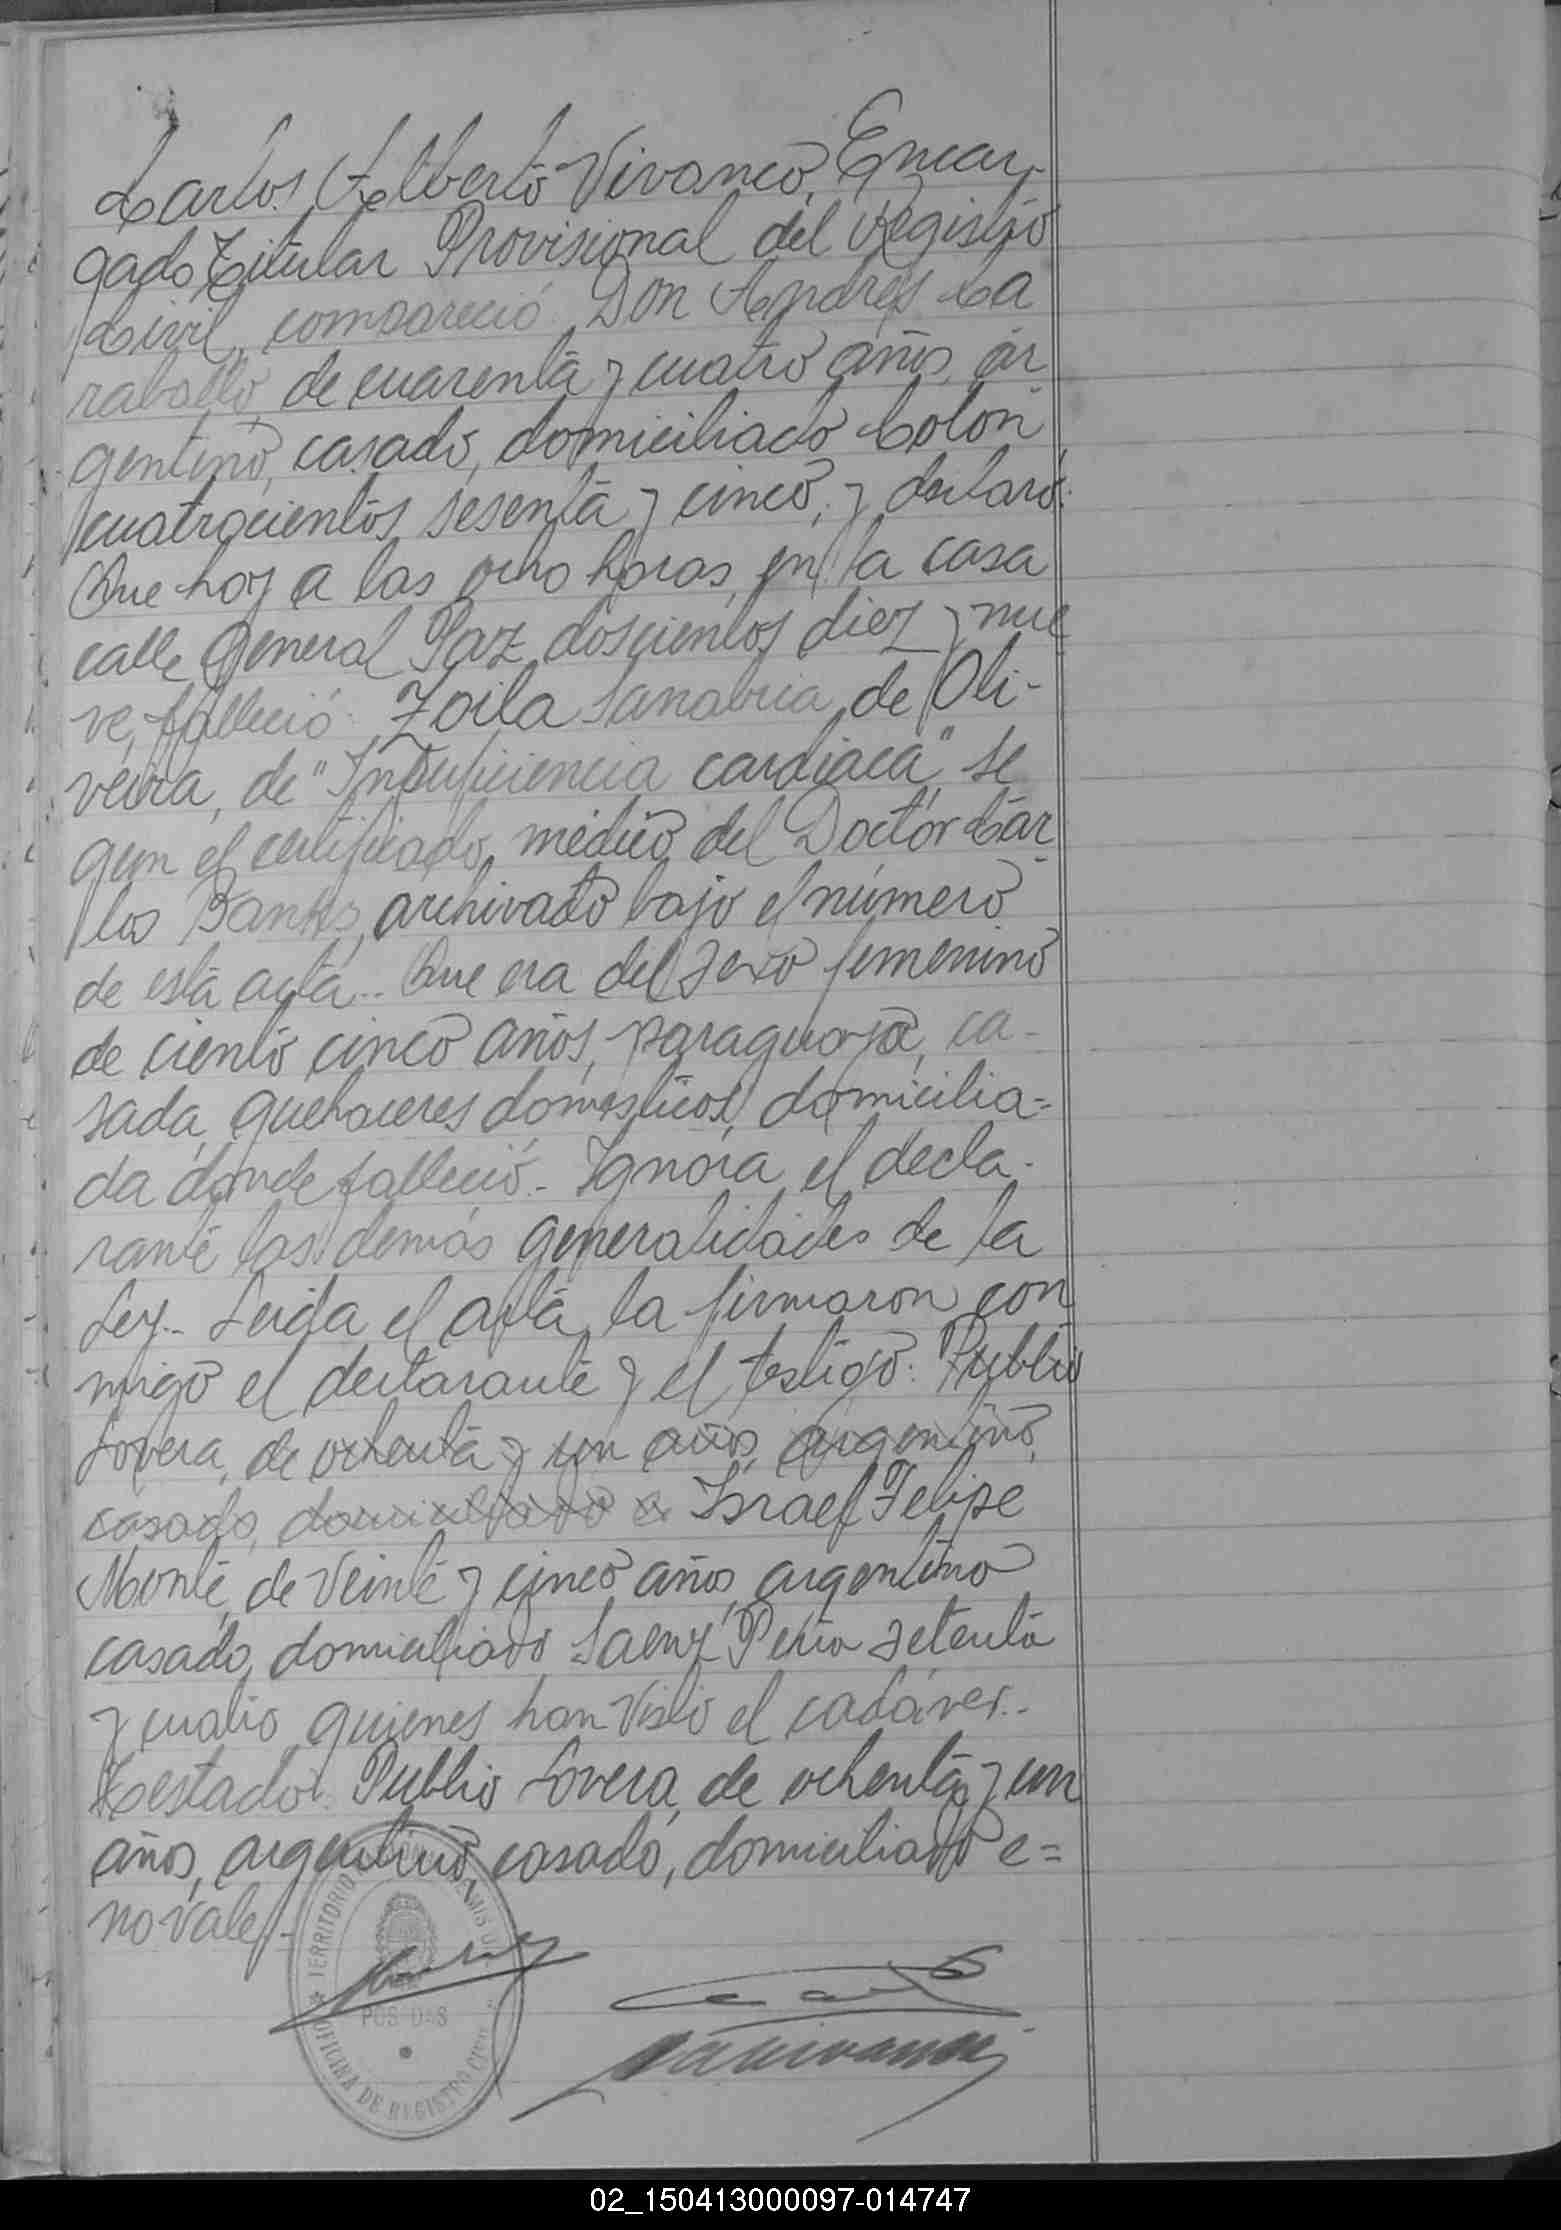 Carlos Alberto Vivanco, Encar-
gado Titular Provisional del Registro
Civil, compareció Don Andrés Ca
raballo, de cuarenta y cuatro años, ar
gentino, casado, domiciliado Colón
cuatrocientos sesenta y cinco, y declaró:
Que hoy a las ocho horas, en la casa
calle General Paz doscientos diez y nue
ve, falleció: Zoila Sanabria de Oli-
veira, de "Insuficiencia cardiaca" se
gun el certificado médico del Doctor Car
los Banks, archivado bajo el número
de esta acta.. Que era del sexo femenino
de ciento cinco años, paraguaya, ca-
sada, quehaceres domesticos, domicilia=
da donde falleció.- Ignora el decla-
rante las demás generalidades de la
Ley.- Leida el acta, la firmaron con
migo el declarante y el testigo: Publio
Lovera, de ochenta y un años, argentino,
casado, domiciliado e Israel Felipe
Monte, de veinte y cinco años, argentino
casado, domiciliado Saenz Peña setenta
y cuatro quienes han visto el cadáver..
Testado: Publio Lovera, de ochenta y un
años, argentino casado, domiciliado e=
no vale.-
TERRITORIO
POSADAS
OFICINA DE REGISTRO CIVIL
02_150413000097-014747